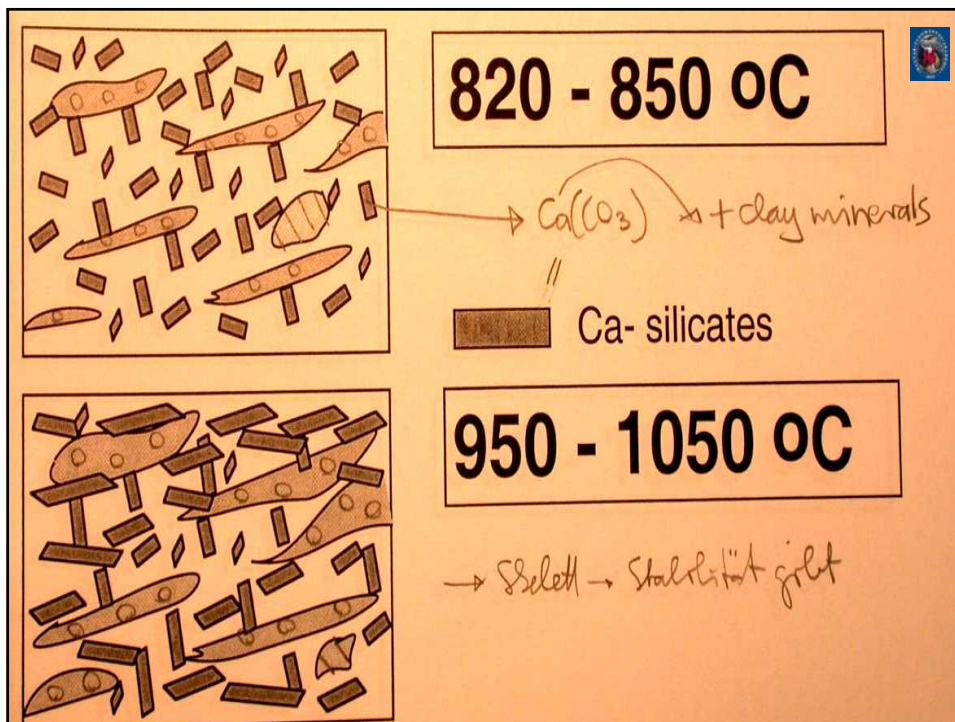 820 - 850 oC
Ca(CO₃) ↘ + clay minerals
Ca- silicates
950 - 1050 oC
→ Skelett → Stabilität gibt